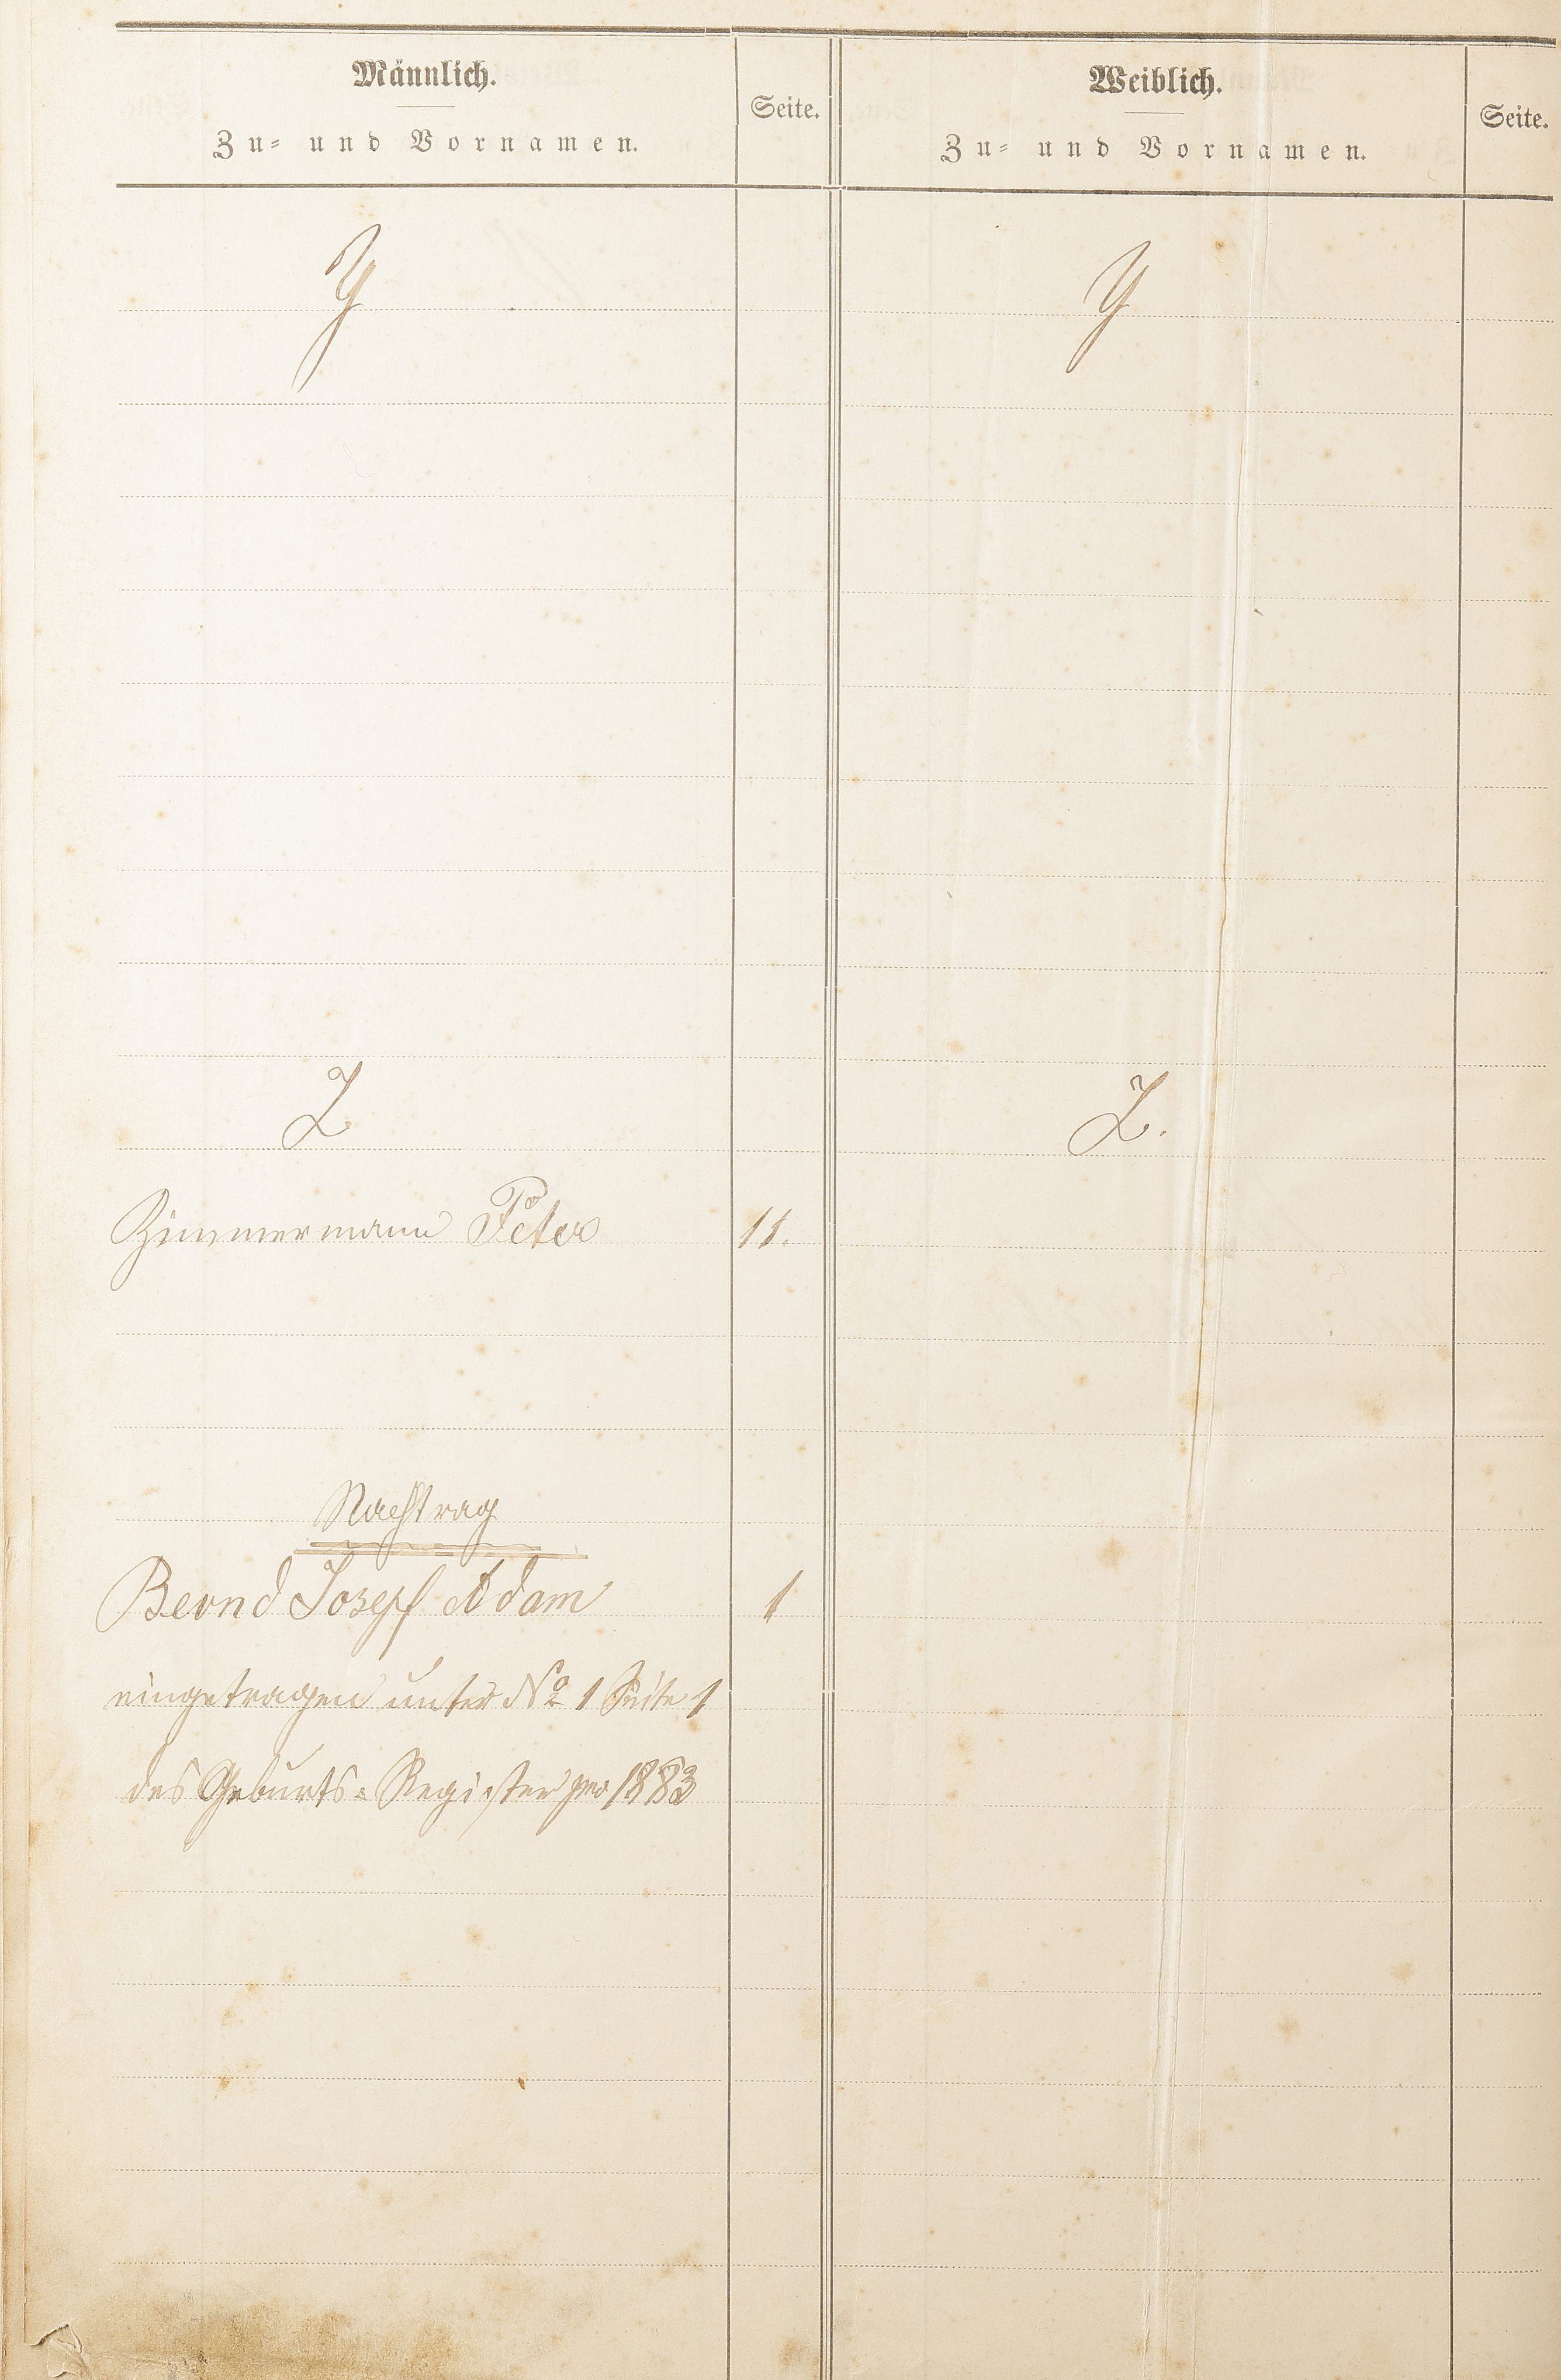 Männlich.
Zu- und Vornamen.
Seite.
Weiblich.
Zu- und Vornamen.
Seite.
Y
Y
Z
Z.
Zimmermann Peter 11.
Nachtrag
Bernd Josef Adam 1
eingetragen unter No 1 Seite 1
des Geburts-Register pro 1883